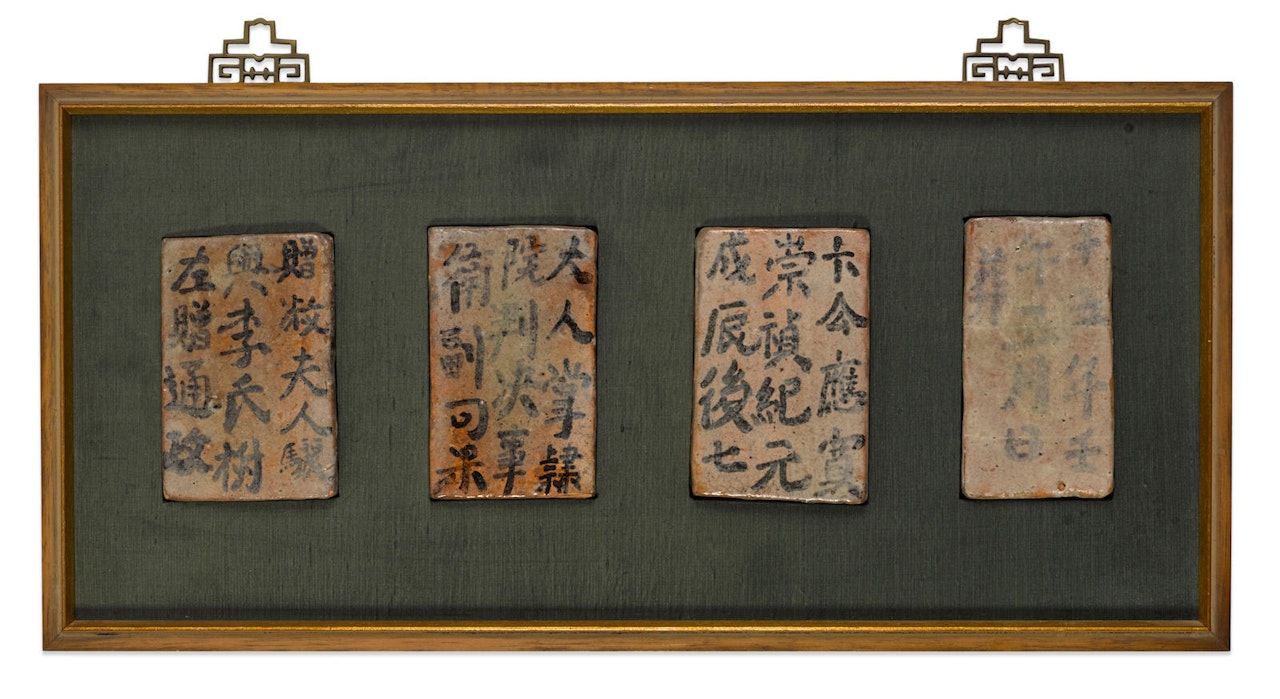 贈淑夫人驪
興李氏樹
左贈通政
大人掌隷
院判決事
前副司果
卞公應
崇禎紀元
戊辰後七
十五年壬
午月日
葬